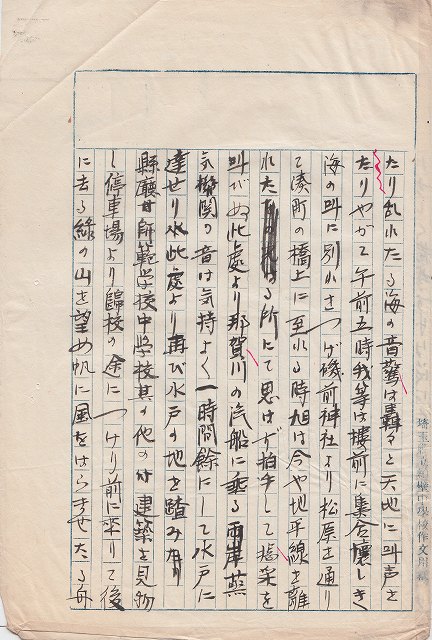 たり乱れたる海の音驚は轟々と天地に叫声を
たりやがて午前五時我等は楼前に集合懐しき
海の叫に別れをつげ磯前神社より松原を通り
て湊町の橋上に至れる時旭は今や地平線を離
れたる所にて思はず拍手して喝采を
叫びぬ此處より那賀川の汽船に乗る両岸蒸
気機関の音は気持よく一時間餘にして水戸に
達せり此處より再び水戸の地を踏み
縣廳師範学校中学校其の他の建築を見物
し停車場より帰校の余につけり前に来りて後
に去る緑の山を望め帆に風をはらませたる舟
埼玉中學校作文用紙